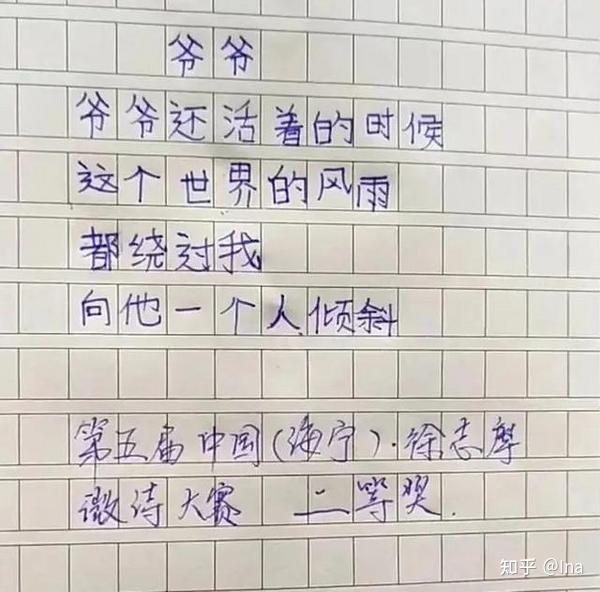 爷爷
爷爷还活着的时候
这个世界的风雨
都绕过我
向他一个人倾斜
第五届中国(海宁)·徐志摩
微诗大赛 二等奖.
知乎 @Ina